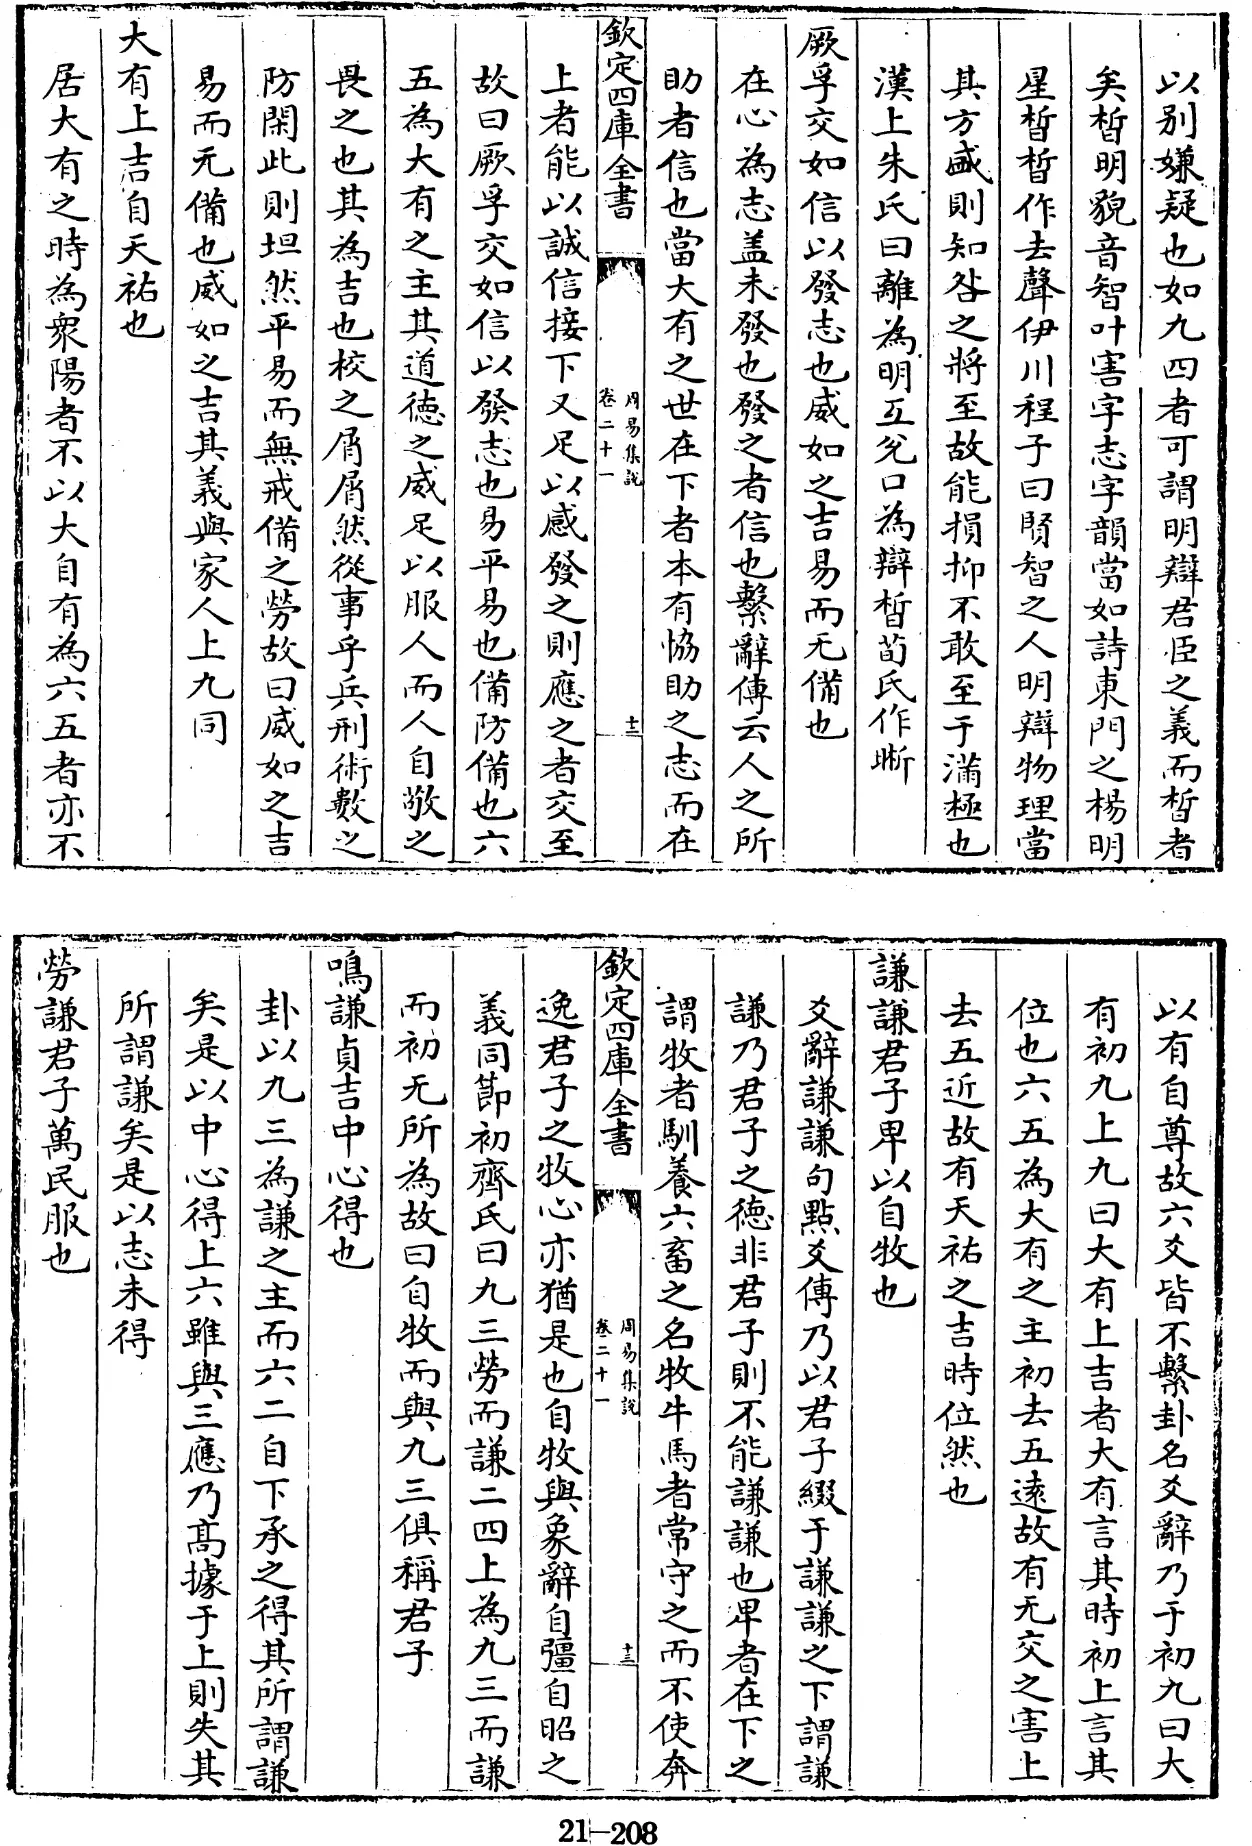 以别嫌疑也如九四者可謂明辯君臣之義而晳者
矣晳明貌音智叶害字志字韻當如詩東門之楊明
星晳晳作去聲伊川程子曰賢智之人明辯物理當
其方盛則知咎之將至故能損抑不敢至于滿極也
漢上朱氏曰離為明互兊口為辯晳荀氏作晣
厥孚交如信以發志也威如之吉易而无備也
在心為志盖未發也發之者信也繫辭傳云人之所
助者信也當大有之世在下者本有協助之志而在
欽定四庫全書
周易集說
卷二十一
十二
上者能以誠信接下又足以感發之則應之者交至
故曰厥孚交如信以發志也易平易也備防備也六
五為大有之主其道德之威足以服人而人自敬之
畏之也其為吉也校之屑屑然從事乎兵刑術數之
防閑此則坦然平易而無戒備之勞故曰威如之吉
易而无備也威如之吉其義與家人上九同
大有上吉自天祐也
居大有之時為衆陽者不以大自有為六五者亦不
以有自尊故六爻皆不繫卦名爻辭乃于初九曰大
有初九上九曰大有上吉者大有言其時初上言其
位也六五為大有之主初去五遠故有无交之害上
去五近故有天祐之吉時位然也
謙謙君子卑以自牧也
爻辭謙謙句點爻傳乃以君子綴于謙謙之下謂謙
謙乃君子之德非君子則不能謙謙也卑者在下之
謂牧者馴養六畜之名牧牛馬者常守之而不使奔
欽定四庫全書
周易集說
卷二十一
十三
逸君子之牧心亦猶是也自牧與象辭自彊自昭之
義同節初齊氏曰九三勞而謙二四上為九三而謙
而初无所為故曰自牧而與九三俱稱君子
鳴謙貞吉中心得也
卦以九三為謙之主而六二自下承之得其所謂謙
矣是以中心得上六雖與三應乃髙據于上則失其
所謂謙矣是以志未得
勞謙君子萬民服也
21-208